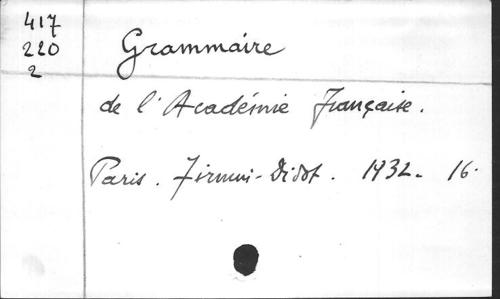 417
220
2
Grammaire
de l'Académie Française.
Paris. Firmin-Didot. 1932. 16.